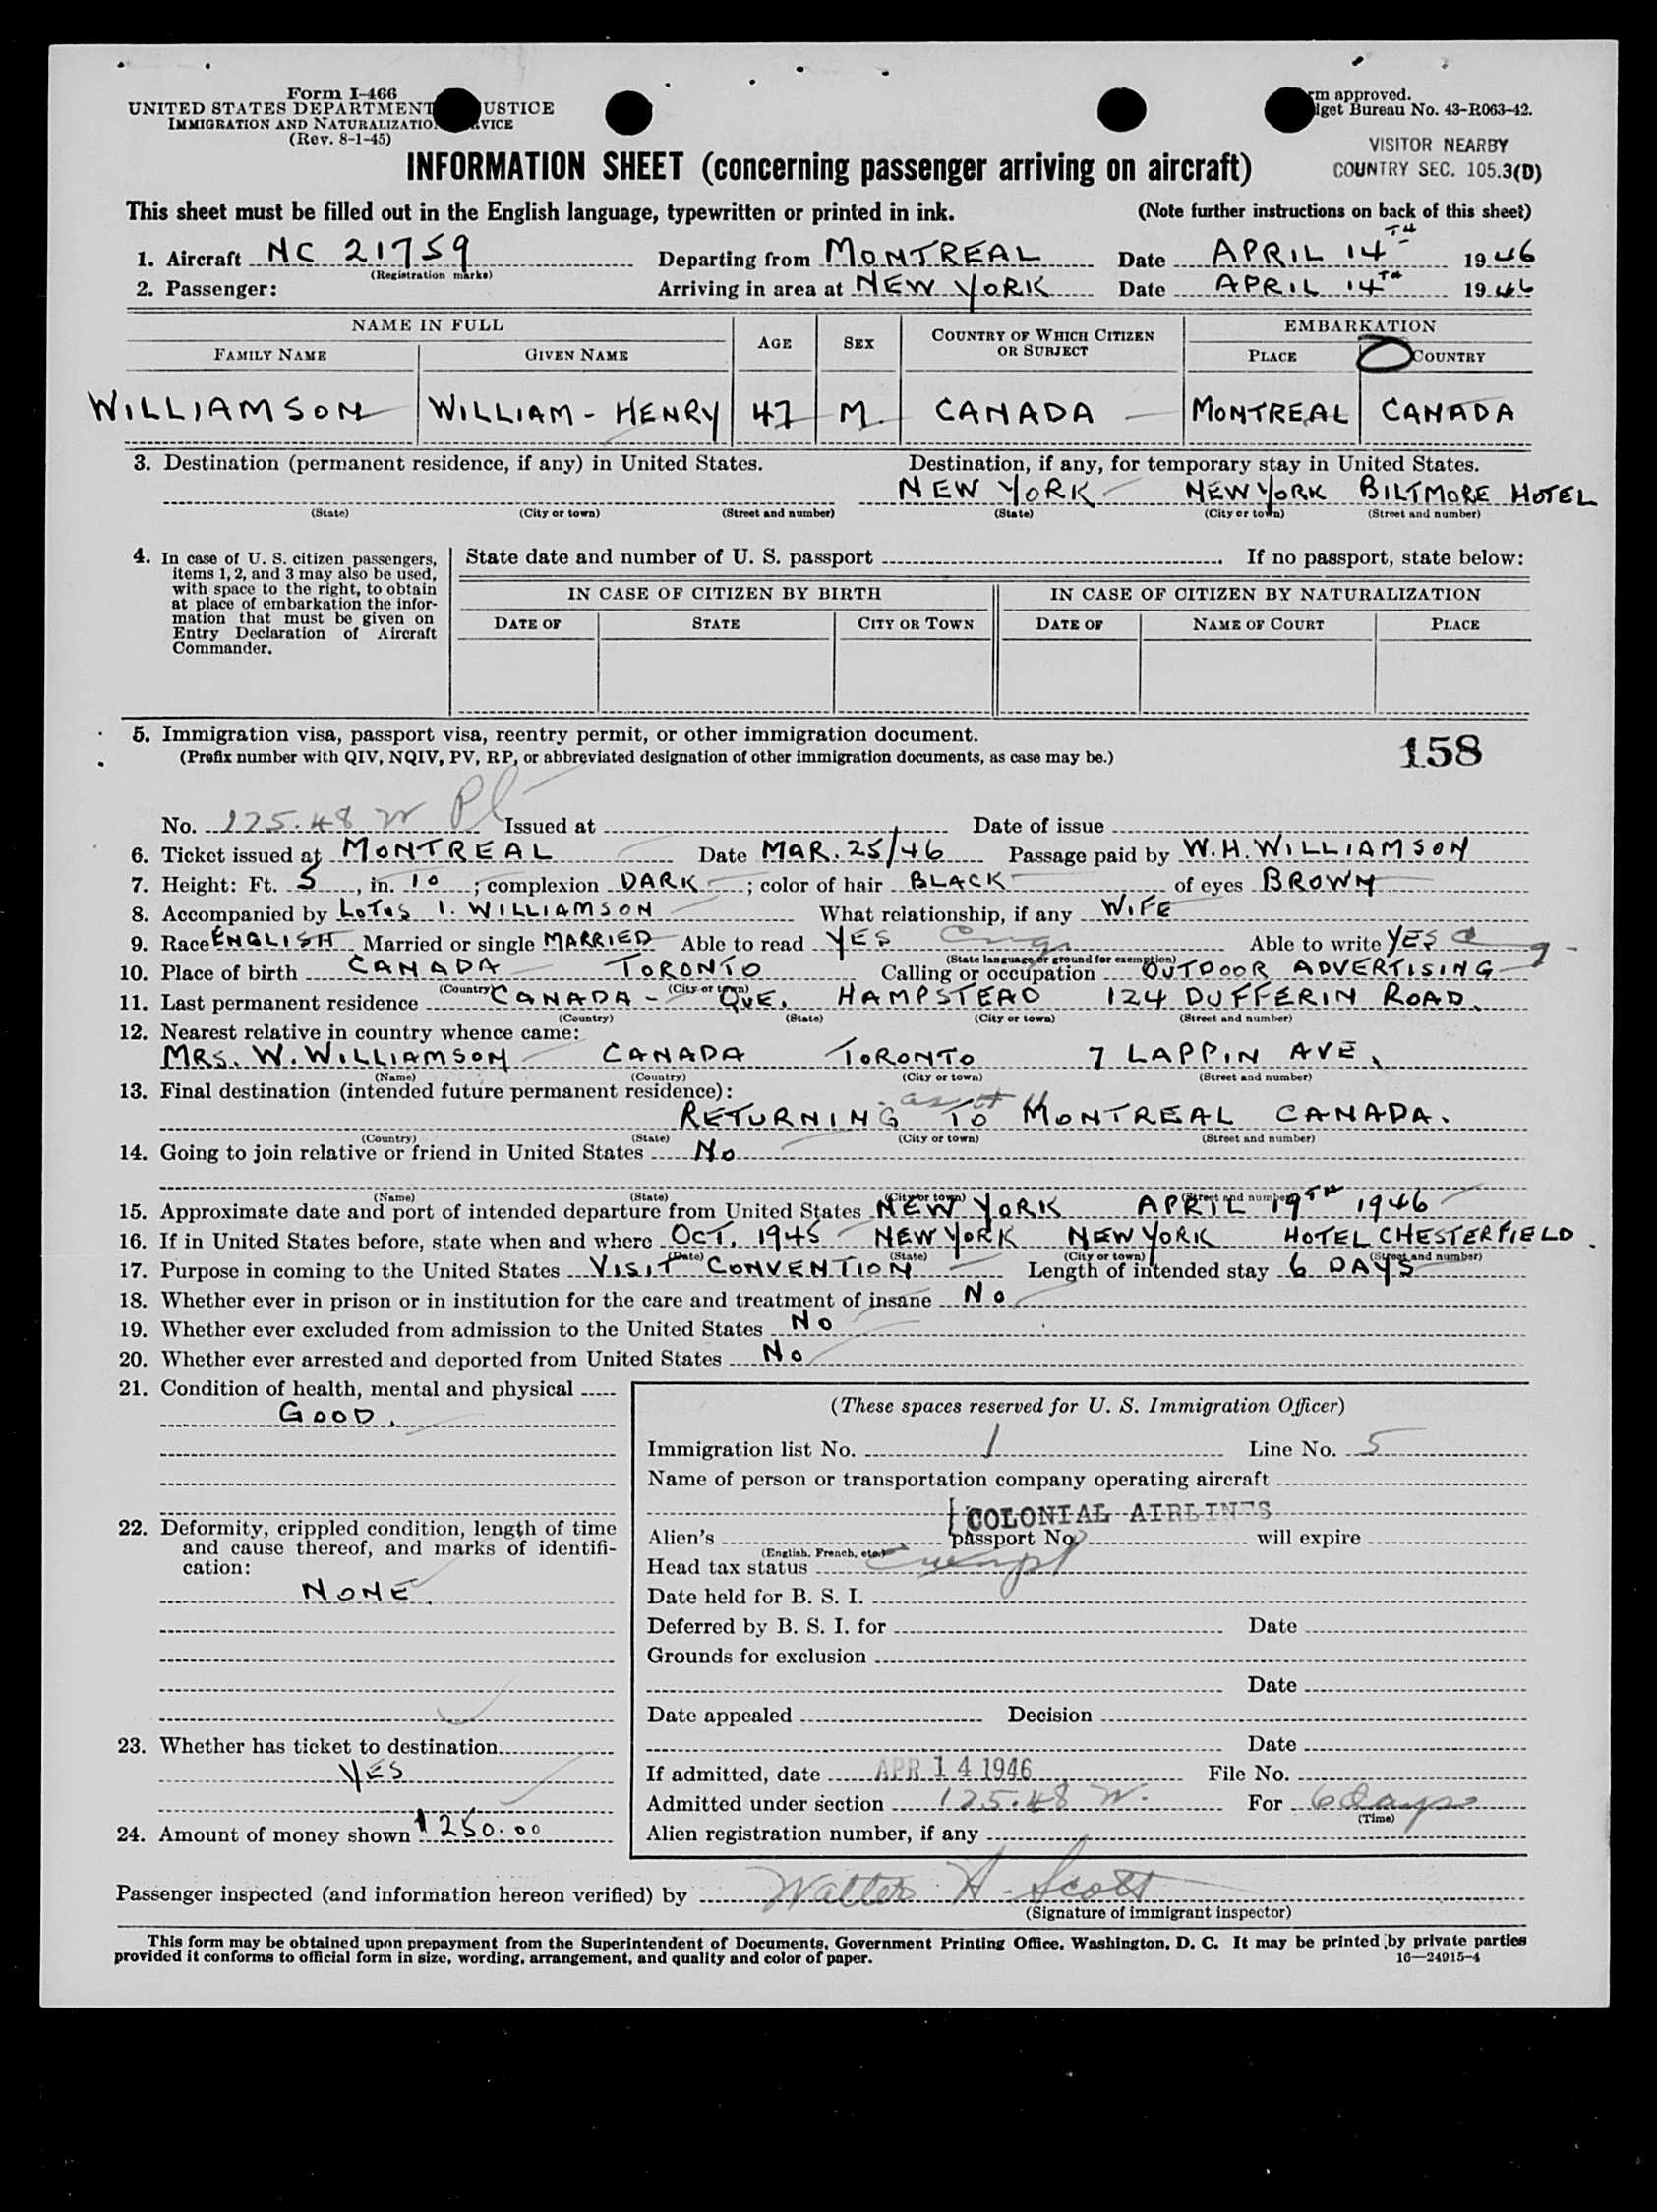 Form I-466
UNITED STATES DEPARTMENT USTICE
IMMIGRATION AND NATURALIZATIO VICE
(Rev. 8-1-45)
rm approved.
lget Bureau No. 43-R063-42.
VISITOR NEARBY
COUNTRY SEC. 105.3(D)
INFORMATION SHEET (concerning passenger arriving on aircraft)
This sheet must be filled out in the English language, typewritten or printed in ink. (Note further instructions on back of this sheet)
1. Aircraft NC 21759 Departing from MONTREAL Date APRIL 14TH 1946
(Registration marks)
2. Passenger: Arriving in area at NEW YORK Date APRIL 14TH 1946
NAME IN FULL AGE SEX COUNTRY OF WHICH CITIZEN OR SUBJECT EMBARKATION
FAMILY NAME GIVEN NAME PLACE COUNTRY
WILLIAMSON WILLIAM - HENRY 47 M. CANADA MONTREAL CANADA
3. Destination (permanent residence, if any) in United States. Destination, if any, for temporary stay in United States.
NEW YORK NEW YORK BILTMORE HOTEL
(State) (City or town) (Street and number) (State) (City or town) (Street and number)
4. In case of U. S. citizen passengers,
items 1, 2, and 3 may also be used,
with space to the right, to obtain
at place of embarkation the infor-
mation that must be given on
Entry Declaration of Aircraft
Commander.
State date and number of U. S. passport . If no passport, state below:
IN CASE OF CITIZEN BY BIRTH IN CASE OF CITIZEN BY NATURALIZATION
DATE OF STATE CITY OR TOWN DATE OF NAME OF COURT PLACE
5. Immigration visa, passport visa, reentry permit, or other immigration document.
(Prefix number with QIV, NQIV, PV, RP, or abbreviated designation of other immigration documents, as case may be.)
158
No. 175.48 W Pl Issued at Date of issue
6. Ticket issued at MONTREAL Date MAR. 25/46 Passage paid by W.H. WILLIAMSON
7. Height: Ft. 5, in. 10; complexion DARK; color of hair BLACK of eyes BROWN
8. Accompanied by LOTUS I. WILLIAMSON What relationship, if any WIFE
9. Race ENGLISH Married or single MARRIED Able to read YES Eng. Able to write YES Eng-
(State language or ground for exemption)
10. Place of birth CANADA TORONTO Calling or occupation OUTDOOR ADVERTISING
(Country) (City or town)
11. Last permanent residence CANADA - QUE. HAMPSTEAD 124 DUFFERIN ROAD.
(Country) (State) (City or town) (Street and number)
12. Nearest relative in country whence came:
MRS. W. WILLIAMSON CANADA TORONTO 7 LAPPIN AVE.
(Name) (Country) (City or town) (Street and number)
13. Final destination (intended future permanent residence):
RETURNING TO MONTREAL CANADA.
(Country) (State) (City or town) (Street and number)
14. Going to join relative or friend in United States NO
(Name) (State) (City or town) (Street and number)
15. Approximate date and port of intended departure from United States NEW YORK APRIL 19TH 1946
16. If in United States before, state when and where OCT. 1945 NEW YORK NEW YORK HOTEL CHESTERFIELD.
(Date) (State) (City or town) (Street and number)
17. Purpose in coming to the United States VISIT CONVENTION Length of intended stay 6 DAYS
18. Whether ever in prison or in institution for the care and treatment of insane NO
19. Whether ever excluded from admission to the United States NO
20. Whether ever arrested and deported from United States NO
21. Condition of health, mental and physical
GOOD.
22. Deformity, crippled condition, length of time
and cause thereof, and marks of identifi-
cation:
NONE.
23. Whether has ticket to destination
YES
24. Amount of money shown $250.00
(These spaces reserved for U. S. Immigration Officer)
Immigration list No. 1 Line No. 5
Name of person or transportation company operating aircraft
COLONIAL AIRLINES
Alien's passport No. will expire
(English, French, etc.)
Head tax status exempt
Date held for B. S. I.
Deferred by B. S. I. for Date
Grounds for exclusion
Date
Date appealed Decision
Date
If admitted, date APR 14 1946 File No.
Admitted under section 175.48 W. For 6 days
(Time)
Alien registration number, if any
Passenger inspected (and information hereon verified) by Walter H. Scott
(Signature of immigrant inspector)
This form may be obtained upon prepayment from the Superintendent of Documents, Government Printing Office, Washington, D. C. It may be printed by private parties
provided it conforms to official form in size, wording, arrangement, and quality and color of paper. 16—24915-4